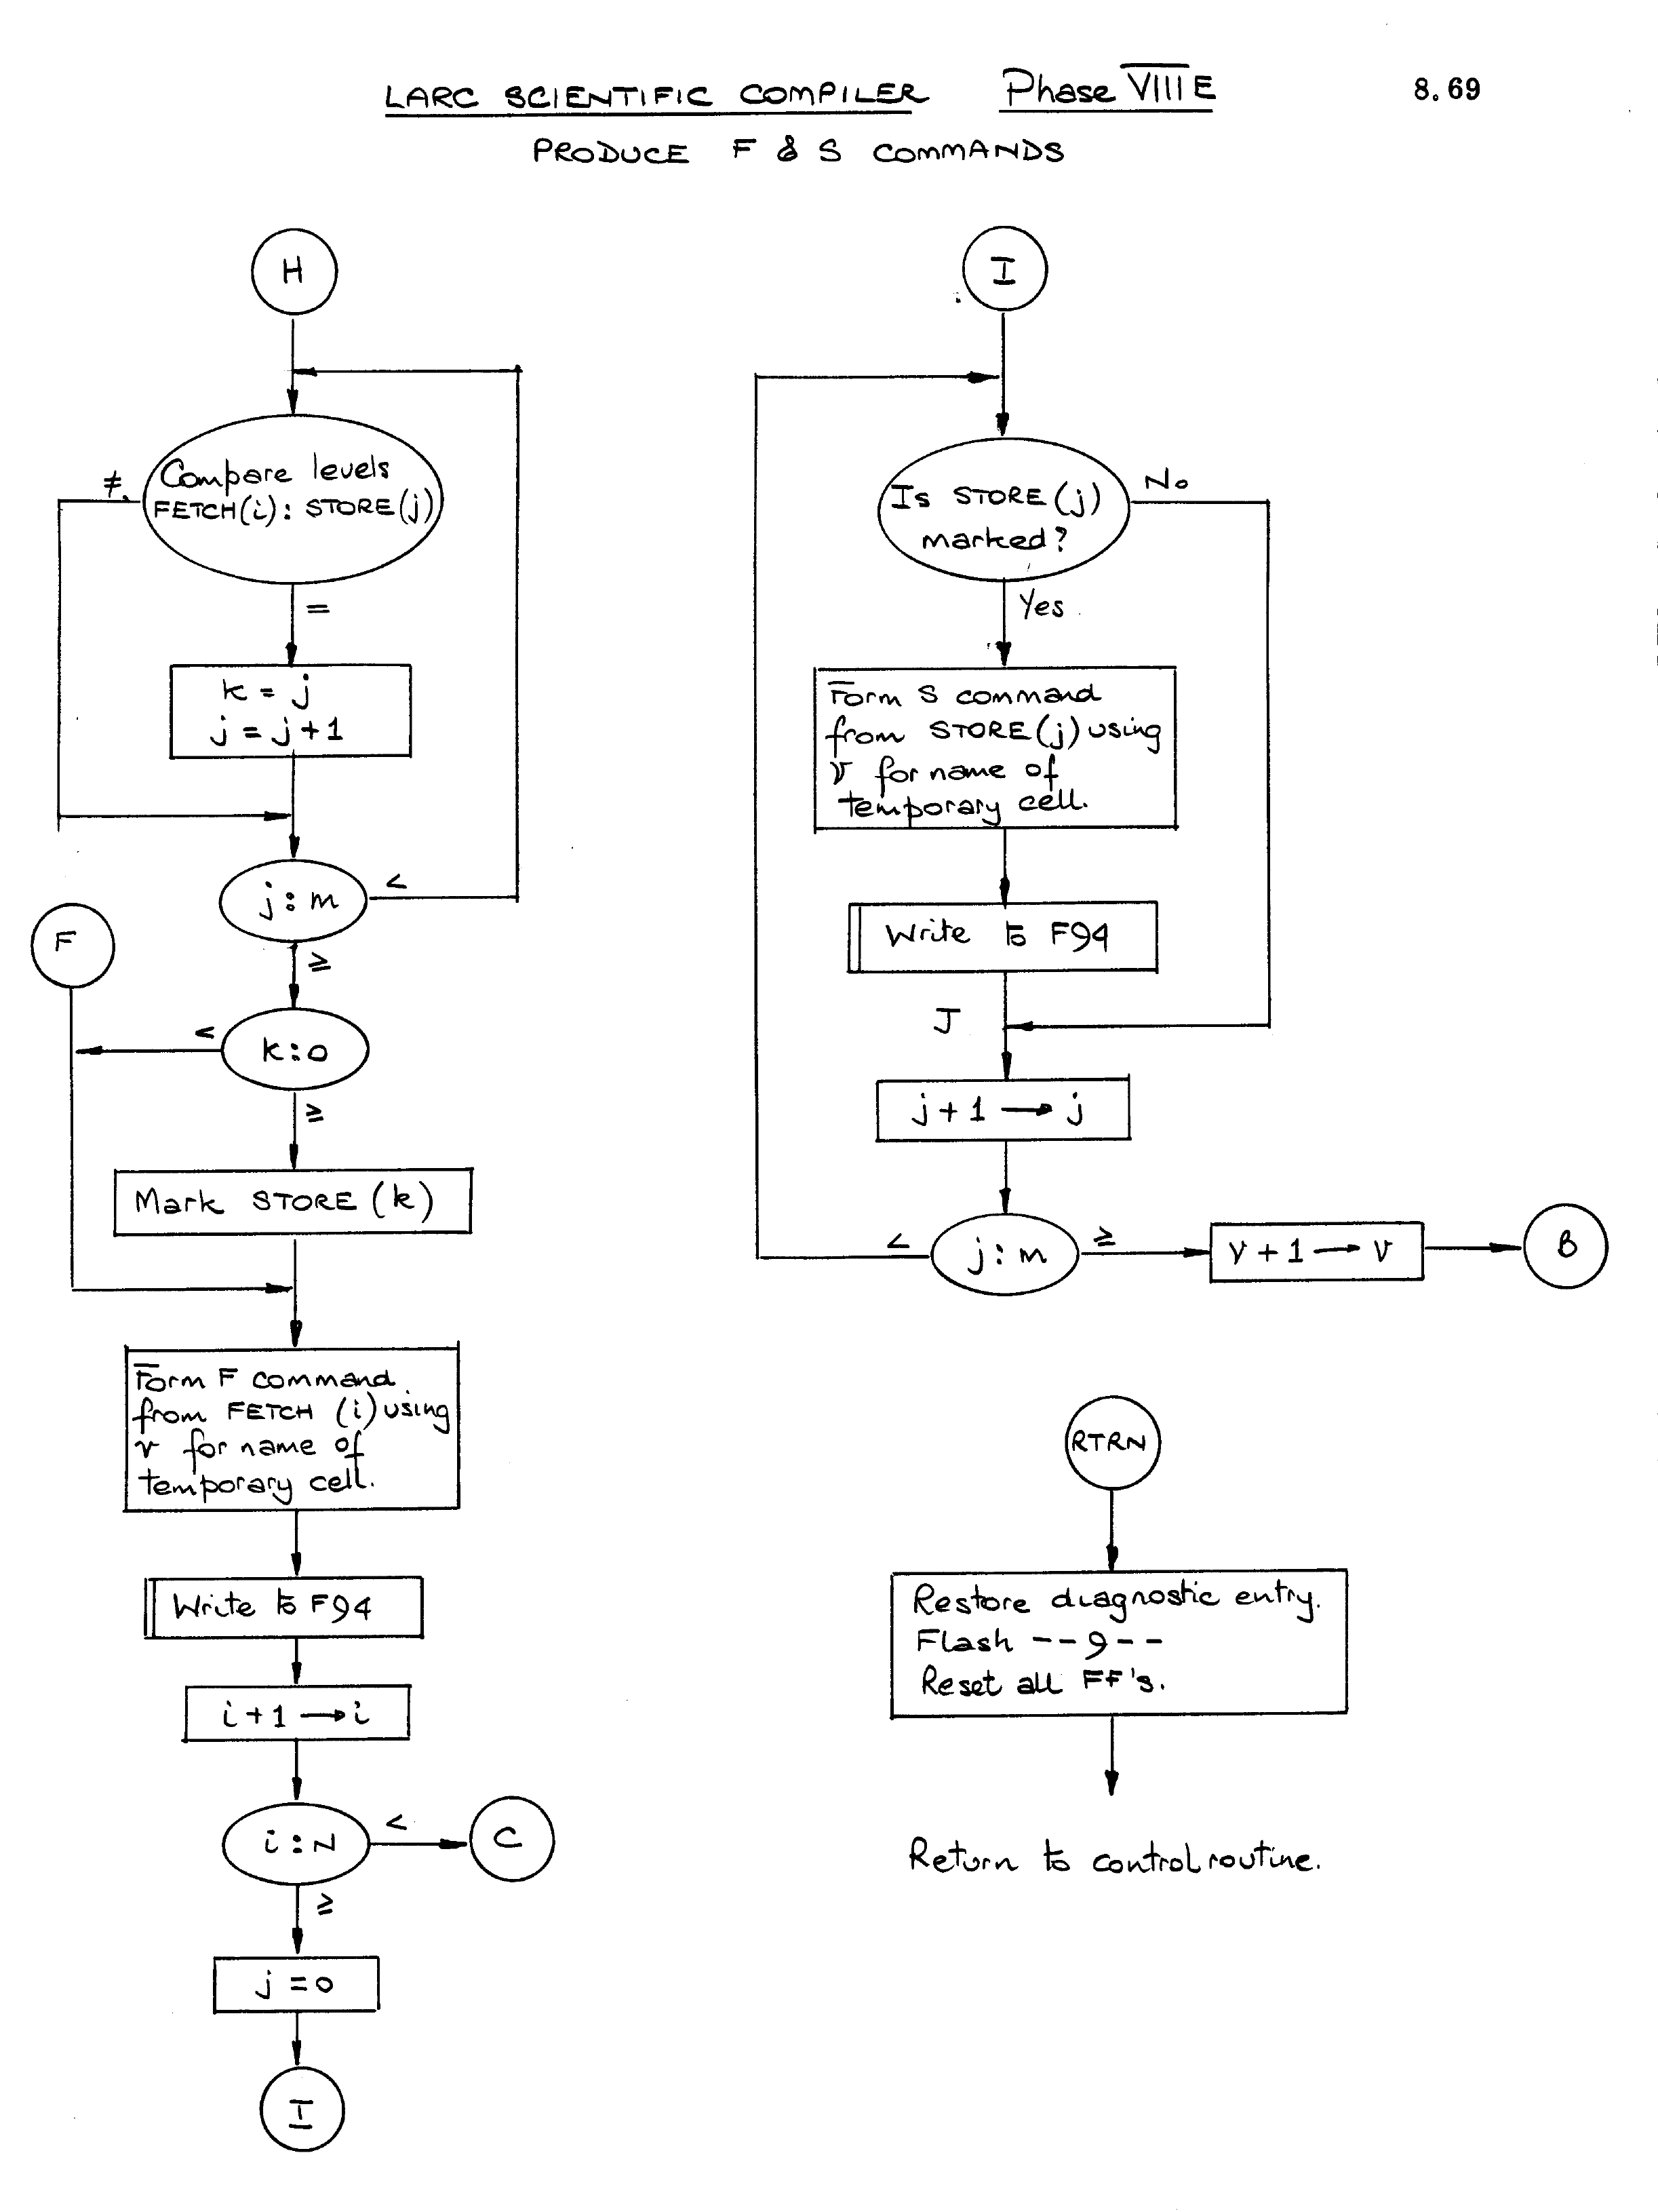 LARC SCIENTIFIC COMPILER Phase VIII E 8.69
PRODUCE F & S COMMANDS
H
Compare levels
FETCH(i): STORE(j)
≠
=
k = j
j = j+1
j : m
<
≥
F
k : 0
<
≥
Mark STORE (k)
Form F command
from FETCH (i) using
v for name of
temporary cell.
Write to F94
i+1 → i
i : N
<
C
≥
j = 0
I
I
Is STORE (j)
marked?
No
Yes
Form S command
from STORE (j) using
v for name of
temporary cell.
Write to F94
J
j+1 → j
j : m
<
≥
v+1 → v
B
RTRN
Restore diagnostic entry.
Flash --9--
Reset all FF's.
Return to control routine.